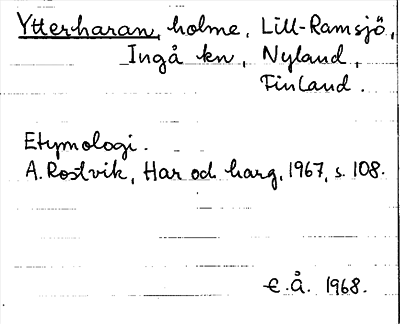 Ytterharan, holme, Lill-Ramsjö,
Ingå kn, Nyland,
Finland.
Etymologi.
A. Rostvik, Har och harg, 1967, s. 108.
E.Å. 1968.